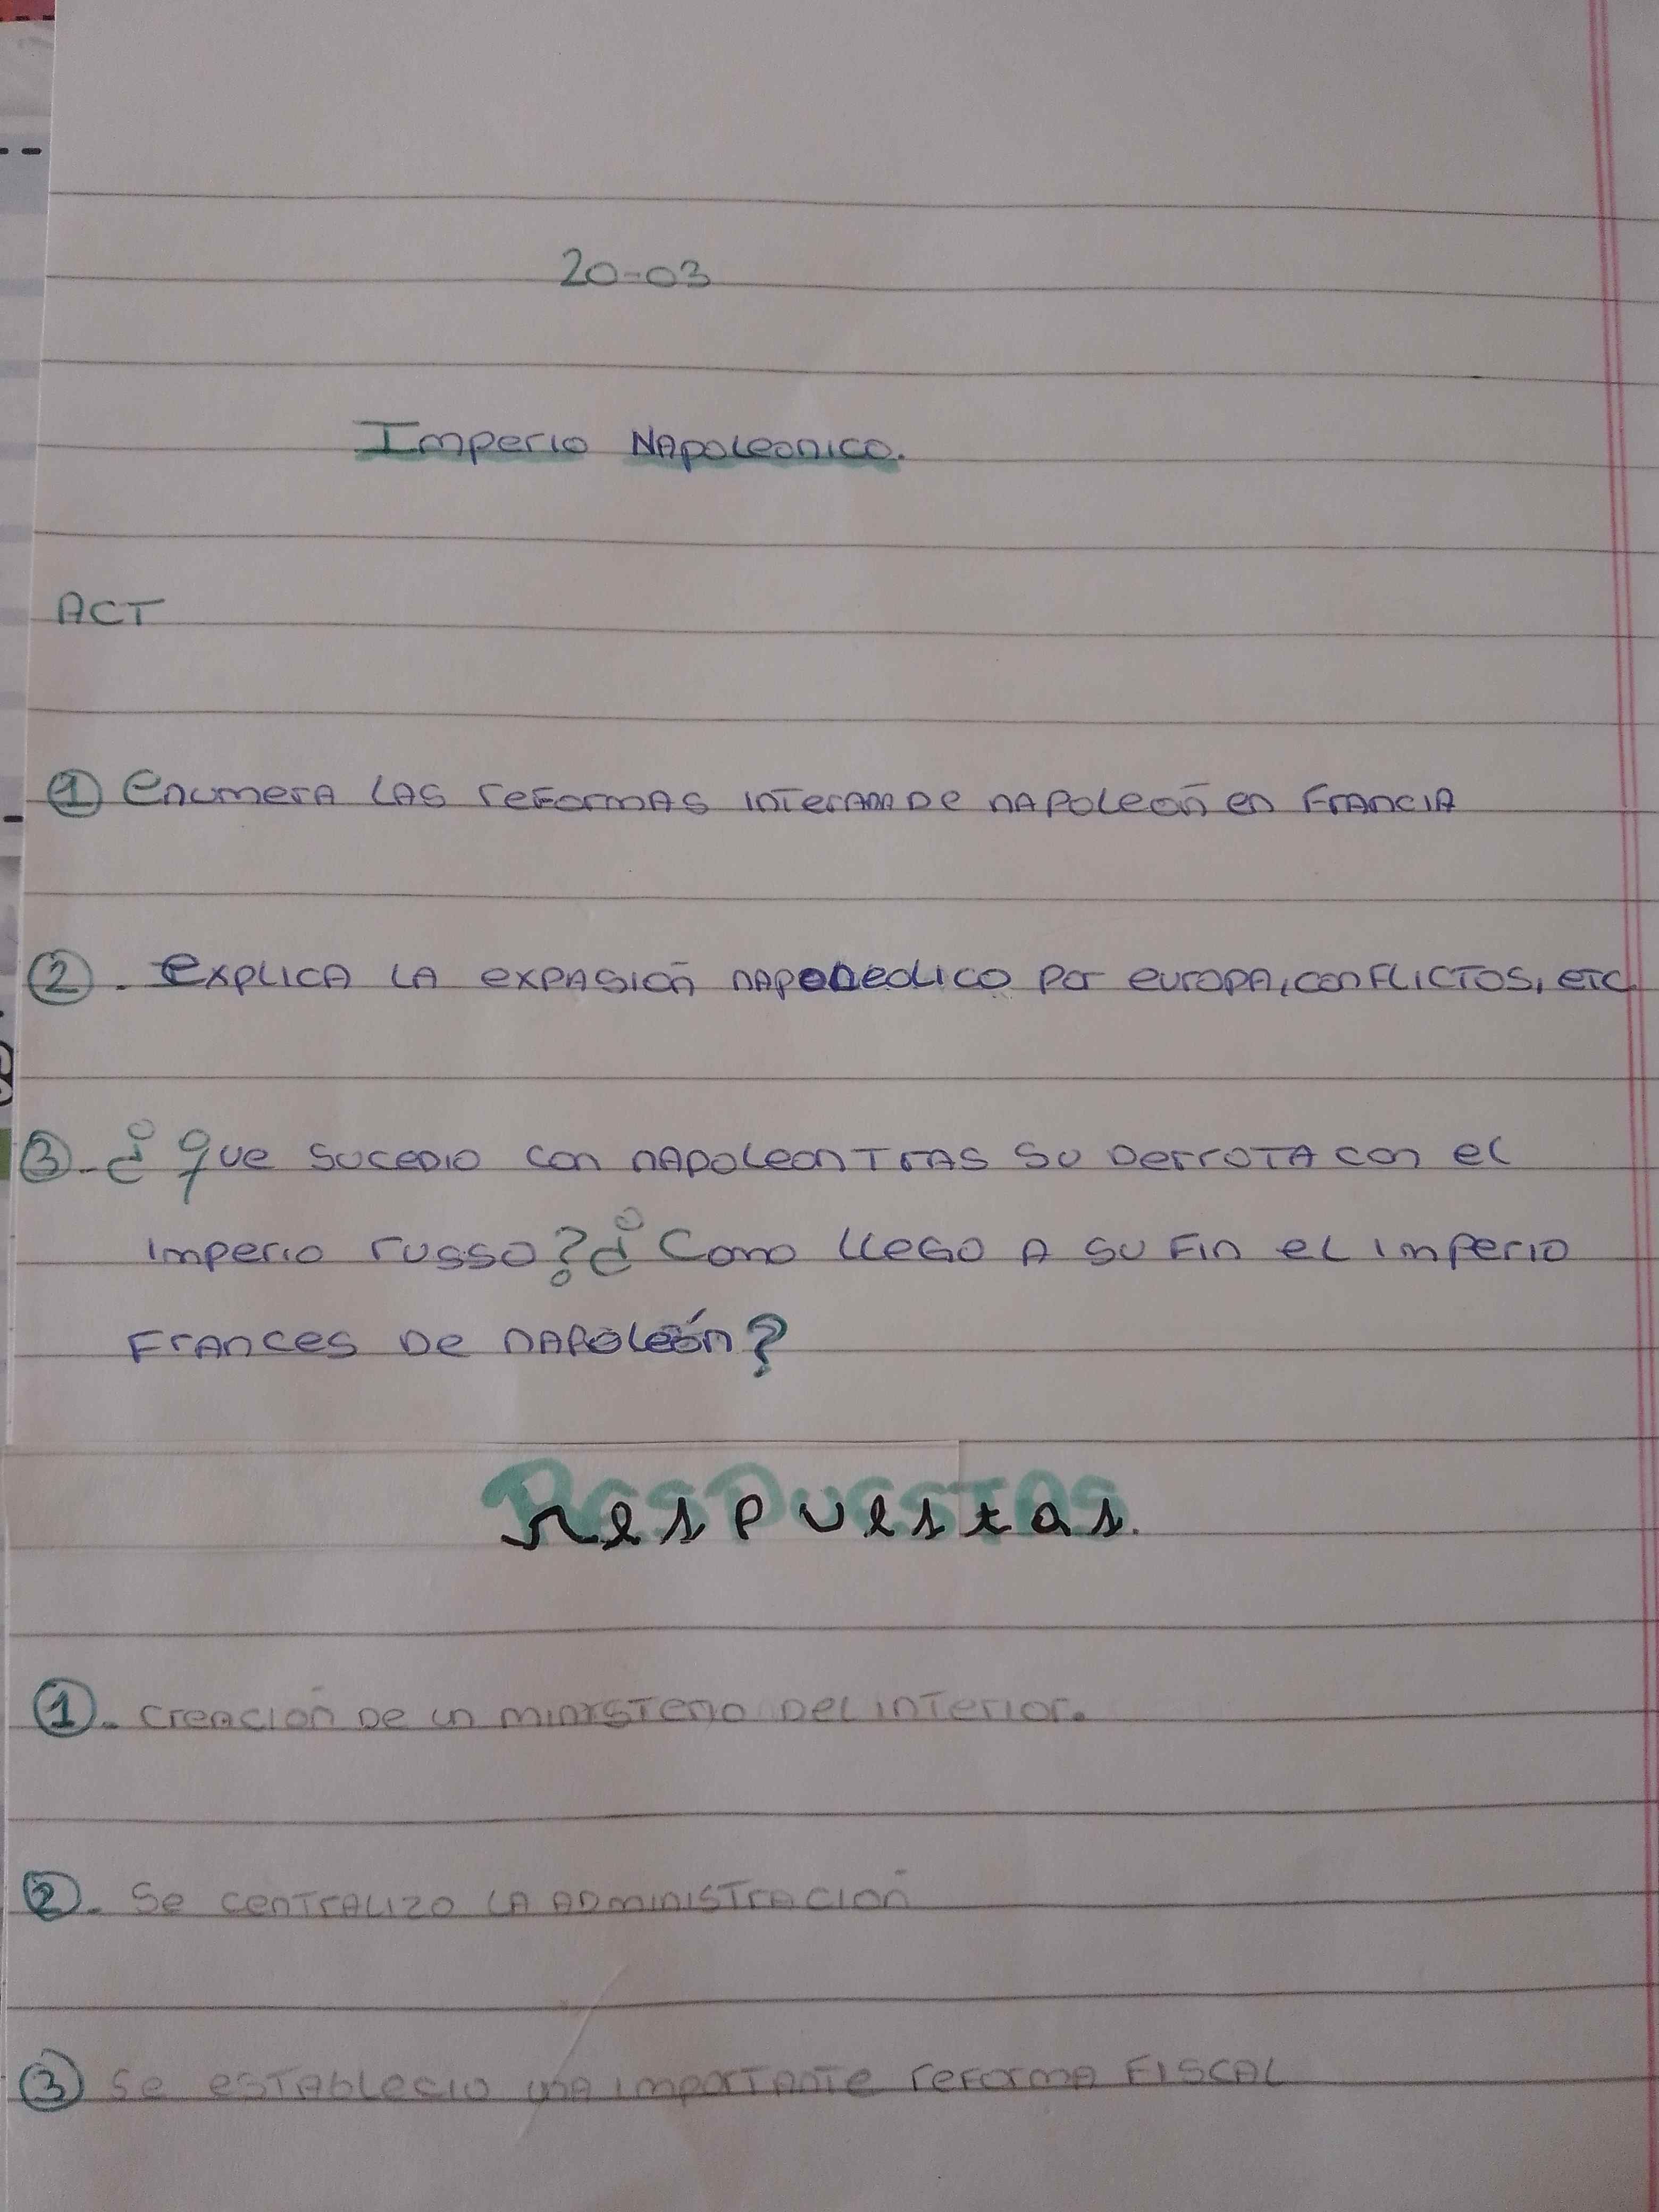 20-03
Imperio Napoleonico.
ACT
① enumera las reformas internas de napoleón en Francia
②. explica la expasión naponeolico por europa, conflictos, etc
③. ¿que sucedio con napoleon tras su derrota con el
imperio russo? ¿Como llego a su fin el imperio
frances de napoleón?
Respuestas.
①. creación de un ministerio del interior.
②. Se centralizo la administración
③ Se establecio una importante reforma fiscal